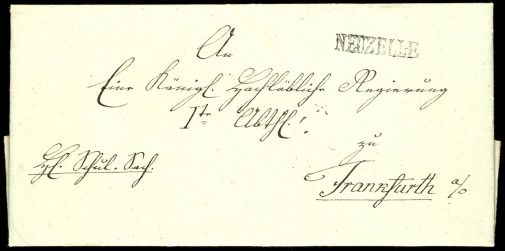 NEUZELLE
An
Eine Königl. Hochlöbliche Regierung
Ite Abthl.
zu
Frankfurth a/O
Schul. Sach.